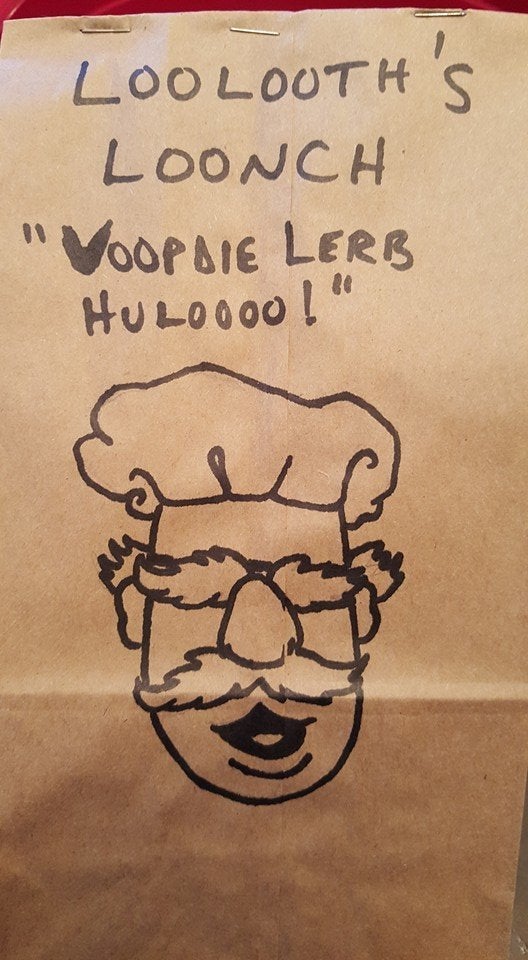 LOOLOOTH'S
LOONCH
"VOOPDIE LERB
HULOOOO!"